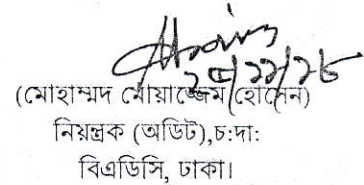 (মোহাম্মদ মোয়াজ্জেম হোসেন)
নিয়ন্ত্রক (অডিট),চ:দা:
বিএডিসি, ঢাকা।